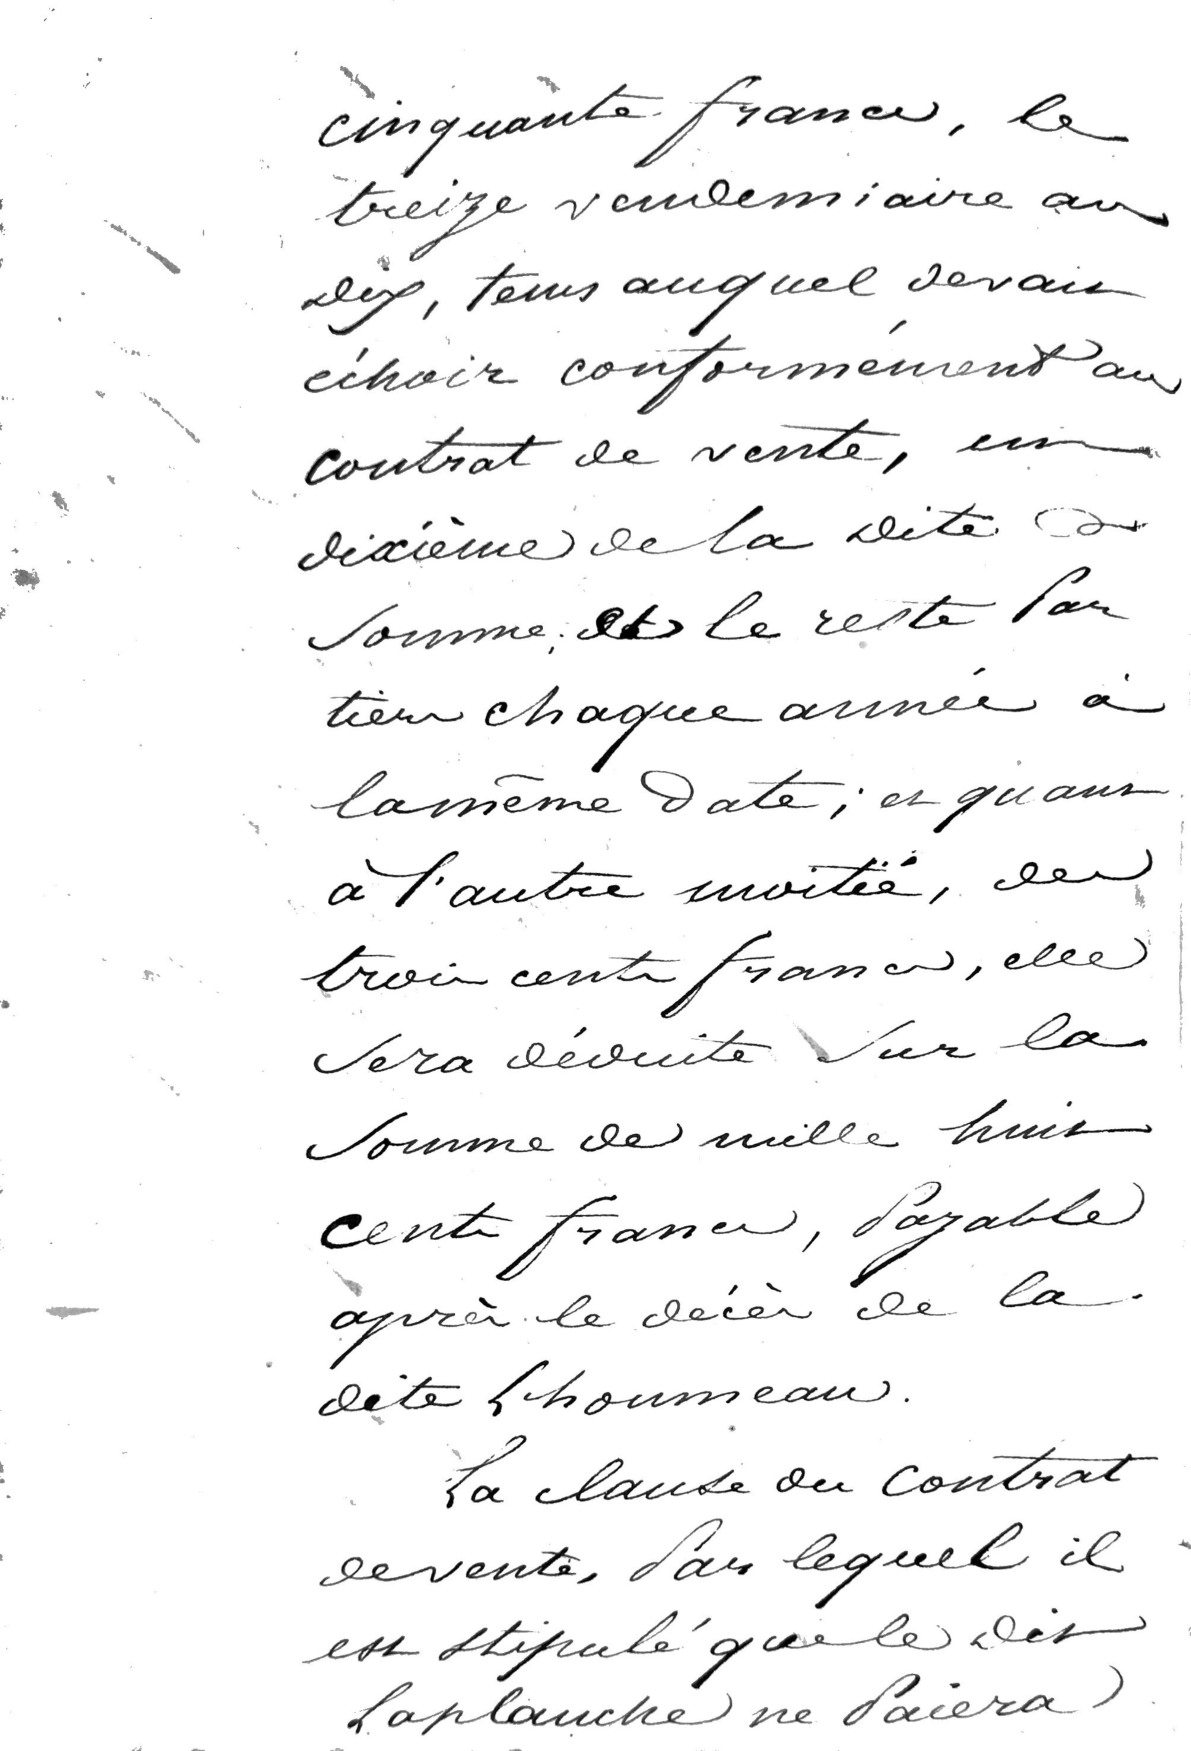 cinquante francs, le
treize vendemiaire an
dix, tems auquel devait
échoir conformément au
contrat de vente, un
dixième de la dite
somme; et le reste par
tiers chaque année à
la même date; et quant
à l'autre moitié, de
trois cents francs, elle
sera déduite sur la
somme de mille huit
cents francs, payable
après le décès de la
dite Lhoumeau.
La clause du contrat
de vente, par lequel il
est stipulé que le dit
Laplanche ne paiera